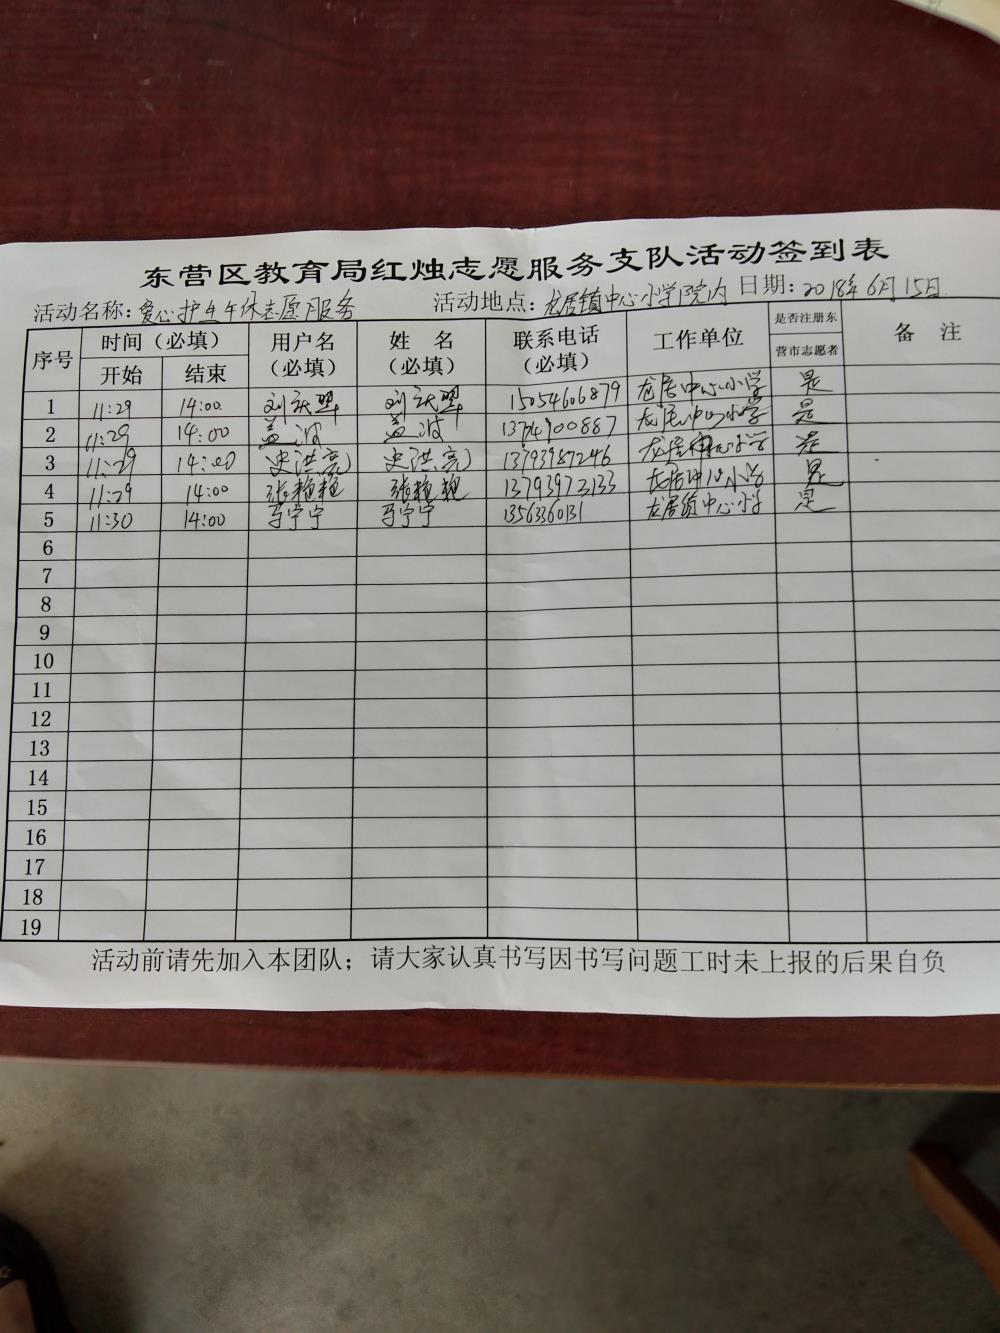 东营区教育局红烛志愿服务支队活动签到表
活动名称：爱心护生午休志愿服务 活动地点：龙居镇中心小学院内 日期：2018年6月15日
序号 时间（必填） 用户名（必填） 姓 名（必填） 联系电话（必填） 工作单位 是否注册东营市志愿者 备 注
开始 结束
1 11:29 14:00 刘 刘 15054606879 龙居中心小学 是
2 11:29 14:00 盖波 盖波 13 龙居中心小学 是
3 11:29 14:00 史洪亮 史洪亮 13793987246 龙居中心小学 是
4 11:29 14:00 张艳艳 张艳艳 13793972133 龙居中心小学 是
5 11:30 14:00 马宁宁 马宁宁 13563360131 龙居镇中心小学 是
6
7
8
9
10
11
12
13
14
15
16
17
18
19
活动前请先加入本团队；请大家认真书写因书写问题工时未上报的后果自负